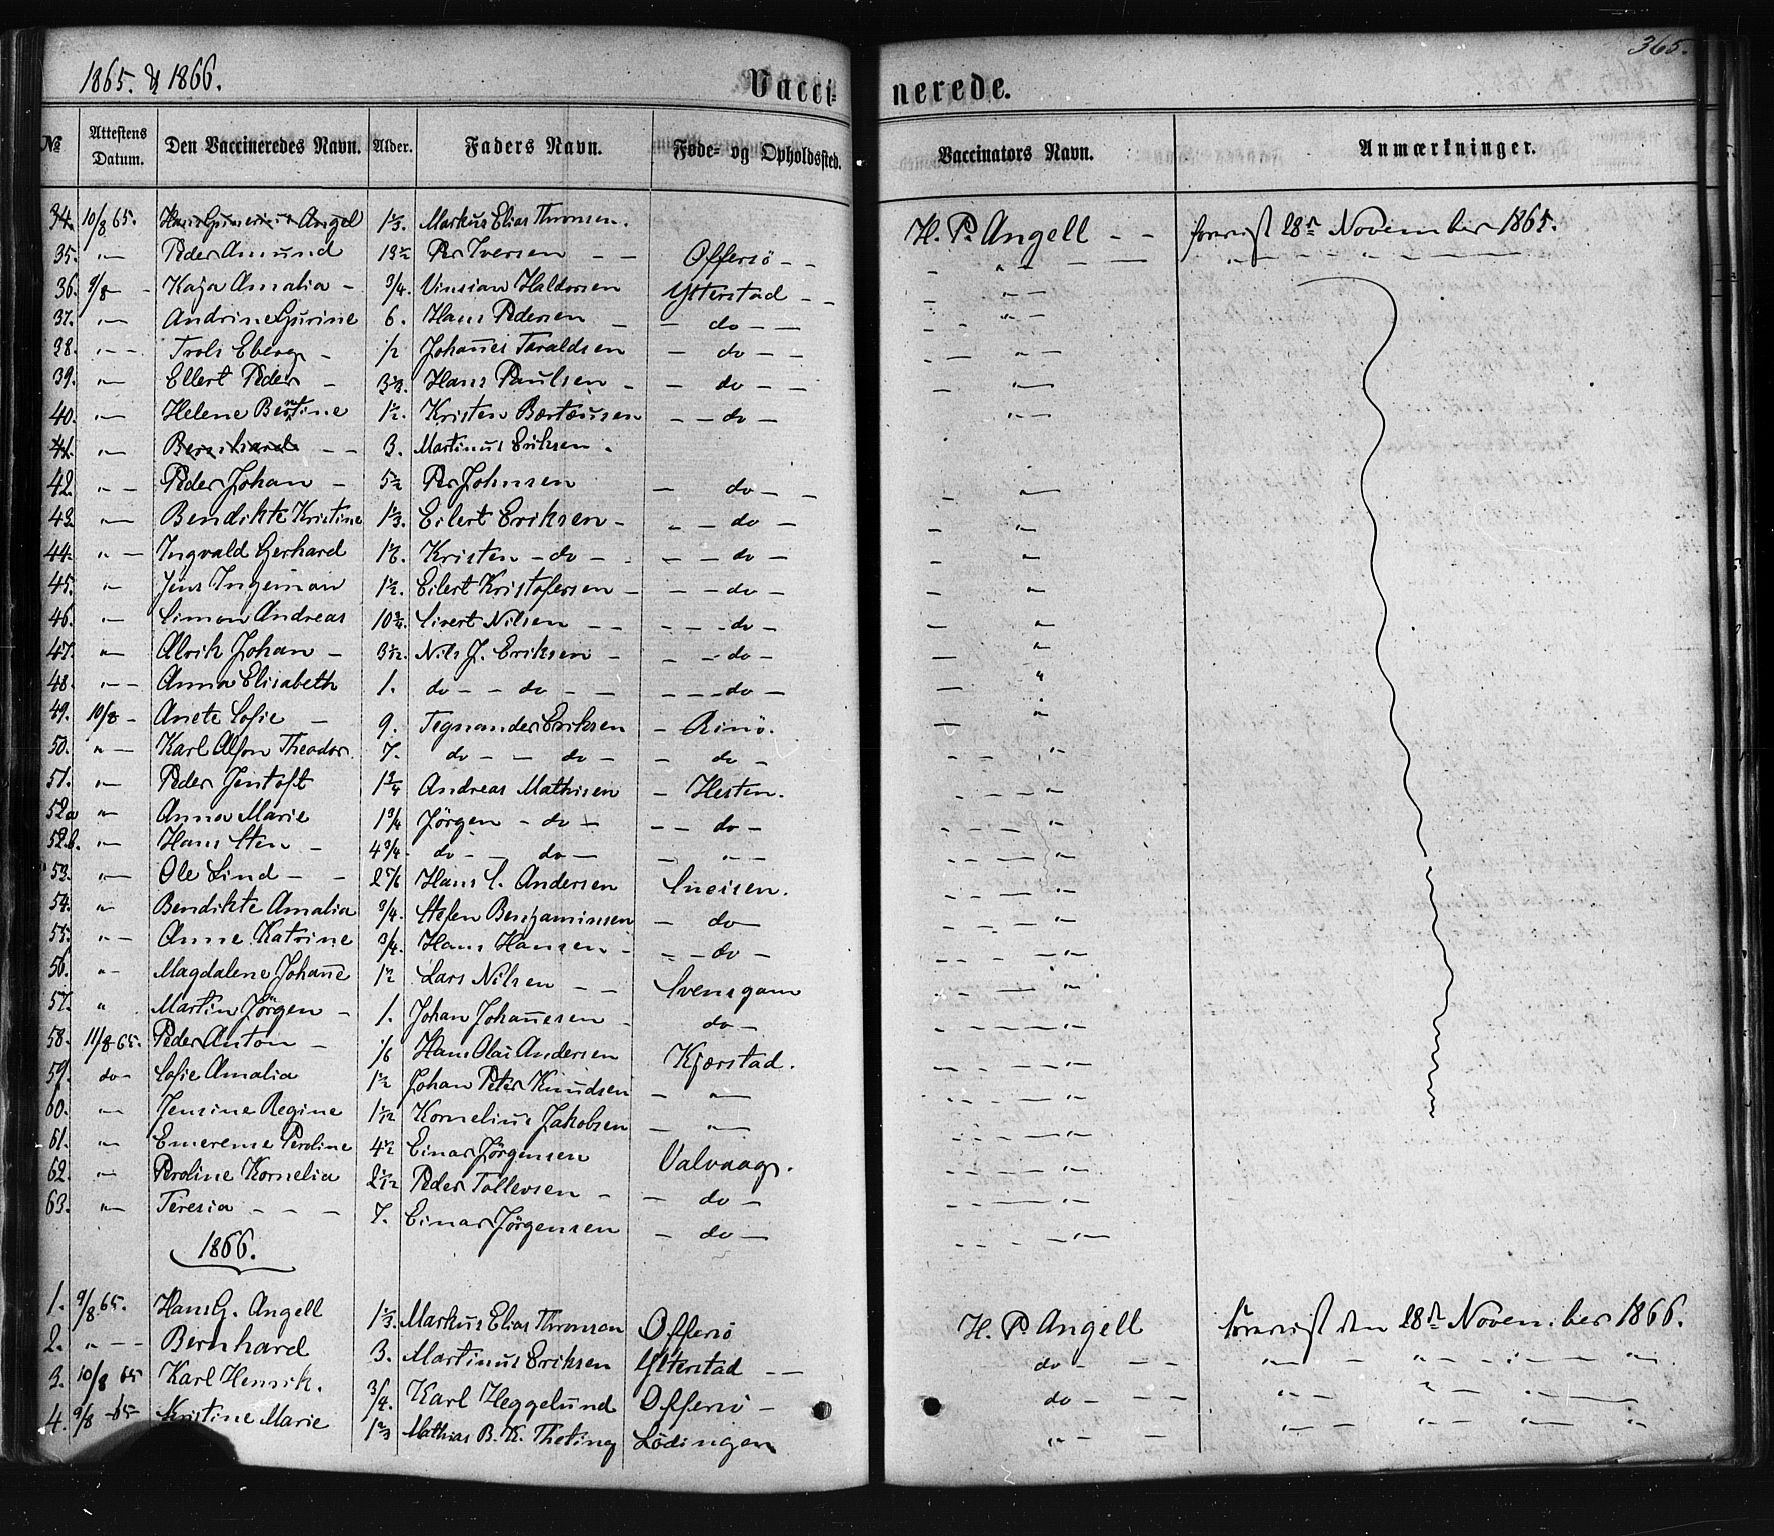 365.
1865. & 1866. Vacci- nerede.
№ Attestens Datum. Den Vaccineredes Navn. Alder. Faders Navn. Føde- og Opholdssted. Vaccinators Navn. Anmærkninger.
34. 10/8 65. Hans Gunerius Angel 1 1/3. Markus Elias Thronsen. H. P. Angell - - forevist 28de November 1865.
35. " - Peder Amund 13 1/2 Per Iversen - - Offersö - - - " - - - " - " - " - - -
36. 9/8 - - Kaja Amalia - 3/4. Vinsian Haldorsen Ytterstad - - - " -
37. " - Andrine Gurine 6. Hans Pedersen - - do - - - - " -
38. " - - Trols Eberg - 1/2 Johannes Taraldsen - do - - - - " -
39. " - Ellert Peder - 3 2/3. Hans Paulsen - - do - - - " -
40. " - Helene Berntine 1 1/2. Kristen Bærtæusen - - do - " -
41. " - Bernhard - - 3. Martinus Eriksen.
42. " - - Peder Johan - 5 1/2 Per Johnsen - do - - - " -
43. " - Bendikte Kristine 1 1/3. Eilert Eriksen - - - do - - "
44. " - Ingvald Gerhard 1/6. Kristen - do - - - - do - - "
45. " - Jens Ingeman 1 1/2. Eilert Kristofersen - - - do - - "
46. " - Simon Andreas 10 3/4. Sivert Nilsen - - - - - do - - "
47. " - Alrik Johan - 3 1/12. Nils J. Eriksen - - - do - - "
48. " - - Anna Elisabeth 1. do - - do - - - - - do - - "
49. 10/8 - Anete Sofie - 9. Tegnander Eriksen - Rinö. - "
50. " - Karl Alfon Theodor. 7. do - - do - - do - - - - "
51. " - Peder Jentoft 1 3/4 Andreas Mathisen - Hesten. - - - - "
52a " - Anna Marie 1 3/4 Jörgen - do - - - do - - - - - "
52.b. " - Hans Sten - 4 3/4. do - - do - - " - - - - - "
53. " - Ole Lind - - 2 5/6 Hans S. Andersen Sneisen. - - - - "
54. " - Bendikte Amalia 3/4. Stefen Benjaminsen - do - - - - - "
55. " - Anne Katrine 3/4. Hans Hansen - - - do - - - - - "
56. " - Magdalene Johanne 1 1/2 Lars Nilsen - - Svensgam - - - "
57. " Martin Jörgen - 1. Johan Johannesen - do - - - - - "
58. 11/8 65. Peder Anton - 1/6 Hans Olai Andersen Kjærstad. - - - - "
59. do - Sofie Amalia 1 1/2 Johan Peter Knudsen - " - - - - - "
60. " - Jensine Regine 1 1/12 Kornelius Jakobsen - " - - - - - "
61. " - Emerense Peroline 4 1/2 Einar Jörgensen Valvaag. - - - - "
62. " - Peroline Kornelia 2 1/12 Peder Tollevsen - - do - - - - - "
63. " - Teresia - - - 7. Einar Jörgensen - do - - - - - " -
1866.
1. 9/8 65. Hans G. Angell 1 1/3. Markus Elias Thronson Offersö H. P. Angell forevist den 28de November 1866.
2. " - - Bernhard 3. Martinus Eriksen Ytterstad - - do - - - " - " - " - " - "
3. 10/8 65 Karl Henrik. 3/4. Karl Heggelund Offersö - do - - - " - " - " - "
4. 9/8 - 65 - Kristine Marie 1 2/3 Mathias B. K. Theting Lödingen " - - " - " - " - "